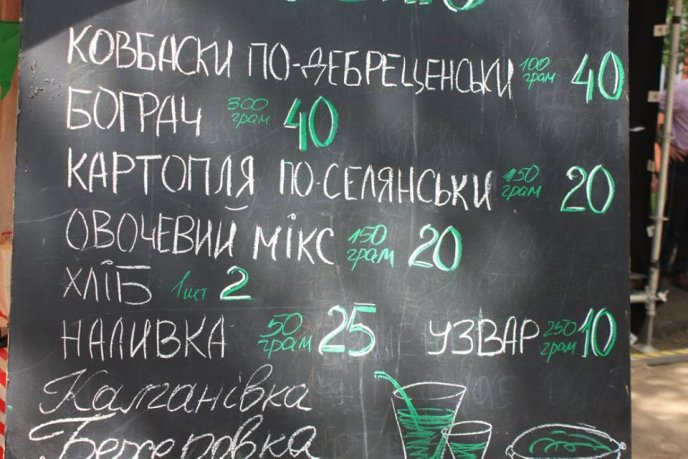 КОВБАСКИ ПО-ДЕБРЕЦЕНСЬКИ 100 грам 40
БОГРАЧ 300 грам 40
КАРТОПЛЯ ПО-СЕЛЯНСЬКИ 150 грам 20
ОВОЧЕВИЙ МІКС 150 грам 20
ХЛІБ 1 шт 2
НАЛИВКА 50 грам 25 УЗВАР 250 грам 10
Калганівка